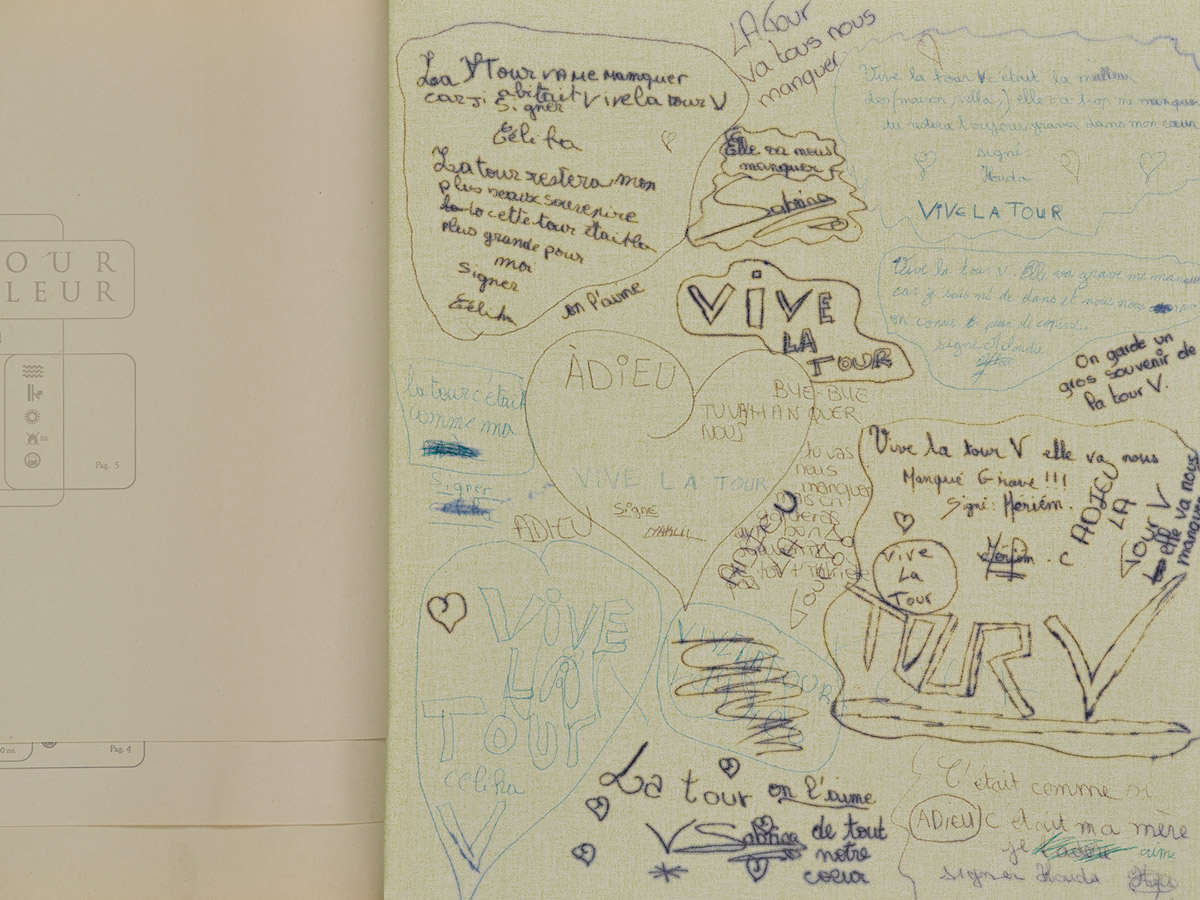 OUR
LEUR
Pag. 5
Pag. 4
La Tour va me manquer
car ji abitait Vive la tour V
Signer
Céliha
La tour restera mon
plus beaux souvenire
la cette tour était la
plus grande pour
moi
Signer
Céliha
on l'aime
LA Tour
va tous nous
manquer
Elle va nous
manquer
Sabrina
VIVE
LA
TOUR
Vive la tour V c'était la meilleur
des (maison, villa,) elle va trop me manque
tu restera toujour graver dans mon cœur
signés
Houda
VIVE LA TOUR
Vive la tour V. Elle va grave me manque
car je suis né de dans et nous nous
on connu
signé
On garde un
gros souvenir de
la tour V.
la tour c'était
comme ma
Signer
ÀDIEU
BYE-BYE
TU VA MANQUER
NOUS
VIVE LA TOUR
Signé
ADIEU
tu vas
nous
manquer
Vive la tour V elle va nous
Manqué Grave !!!
Signé: Mériém.
C
ADIEU
LA
TOUR V
elle va nous
manquer
Vive
La
Tour
TOUR V
VIVE
LA
TOUR
celiha
V
La tour on l'aime
V Sabrina de tout
notre
coeur
C'était comme si
ADIEU C était ma mère
je aime
signer Houda